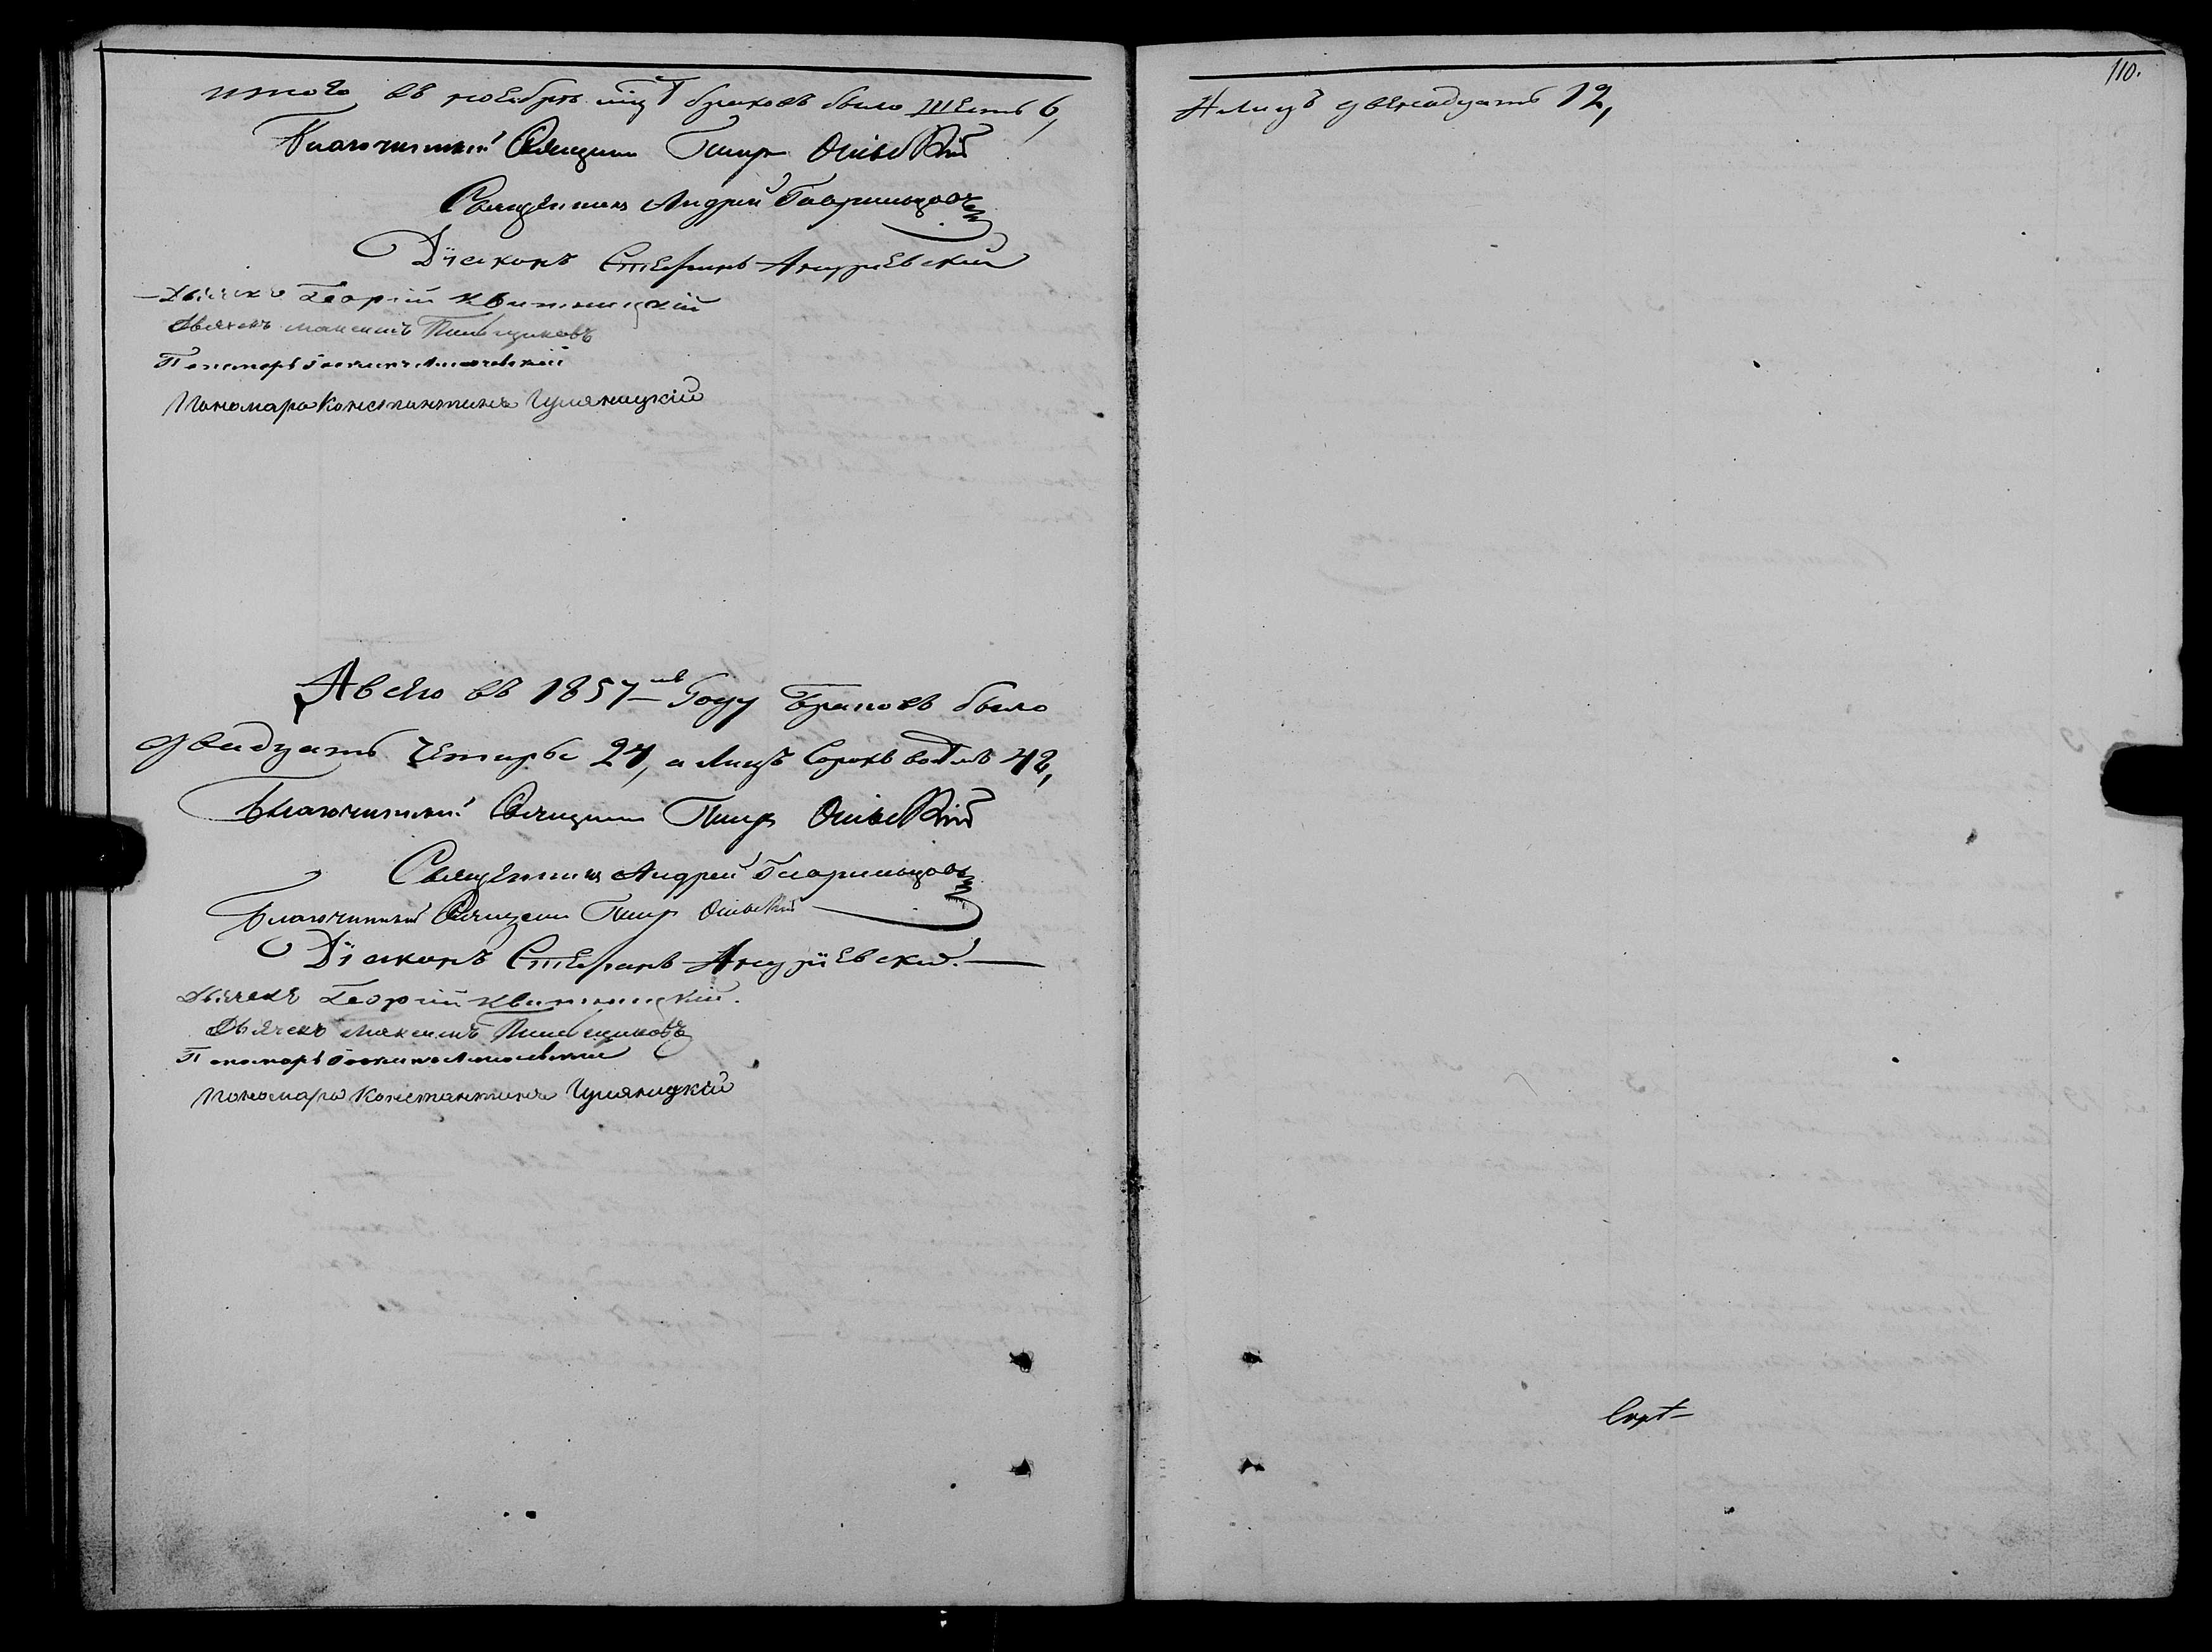 итого въ ноябрѣ мцѣ браковъ было шесть 6,
Благочинный Священникъ Петръ
Священникъ Андрей Гаврильцовъ
Дїаконъ Стефанъ Андрїевский
Дьячекъ Георгій Квитницкій
Дьячекъ Максимъ
Пономарь
Пономарь Константинъ Чуляницкій
А всего въ 1857-мъ Году Браковъ было
двадцать четыре 24, а Лицъ Сорокъ восѣмъ 48,
Благочинный Священникъ Петръ
Священникъ Андрей Гаврильцовъ
Благочинный Священникъ Петръ
Дїаконъ Стефанъ Андрїевский.
Дьячекъ Георгій Квитницкій.
Дьячекъ Максимъ
Пономарь
Пономарь Константинъ Чуляницкій
110.
А лицъ двенадцать 12,